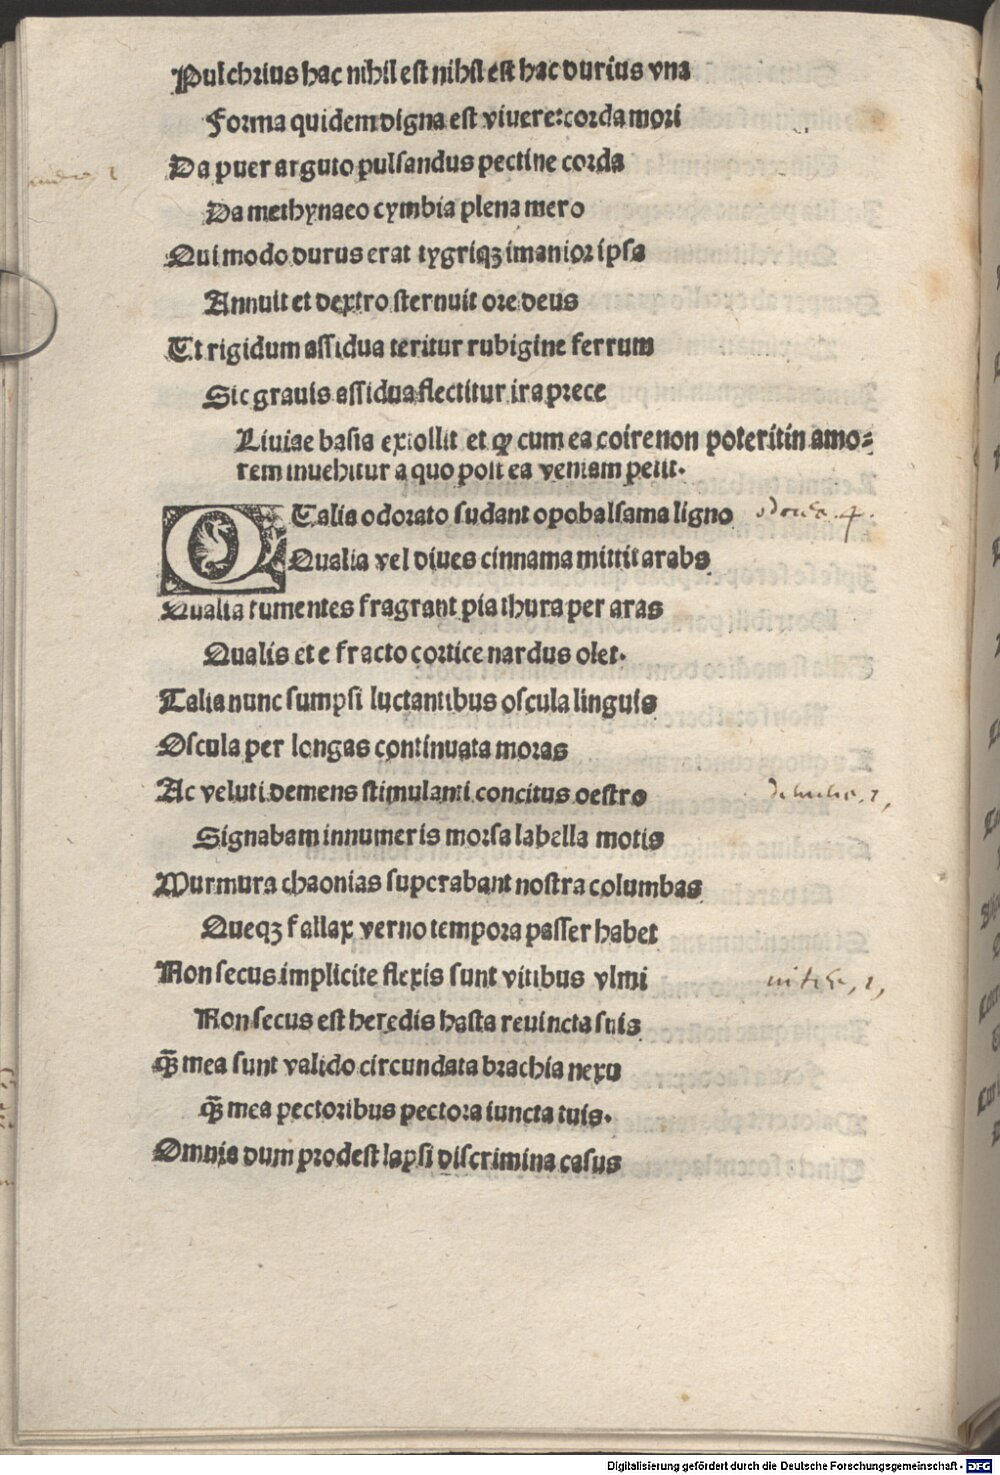 Pulchrius hac nihil est nihil est hac durius vna
Forma quidem digna est viuere: corda mori
Da puer arguto pulsandus pectine corda
Da methynaeo cymbia plena mero
Qui modo durus erat tygriqꝫ imanior ipsa
Annuit et dextro sternuit ore deus
Et rigidum assidua teritur rubigine ferrum
Sic grauis assidua flectitur ira prece
Liuiae basia extollit et ꝙ cum ea coire non poterit in amo-
rem inuehitur a quo post ea veniam petit.
QTalia odorato sudant opobalsama ligno
Qualia vel diues cinnama mittit arabs
Qualia tumentes fragrant pia thura per aras
Qualis et e fracto cortice nardus olet.
Talia nunc sumpsi luctantibus oscula linguis
Oscula per longas continuata moras
Ac veluti demens stimulanti concitus oestro
Signabam innumeris morsa labella motis
Murmura chaonias superabant nostra columbas
Queqꝫ fallax verno tempora passer habet
Non secus implicite flexis sunt vitibus vlmi
Non secus est heredis hasta reuincta suis
q̄ꝫ mea sunt valido circundata brachia nexu
q̄ꝫ mea pectoribus pectora iuncta tuis.
Omnis dum prodest lapsi discrimina casus
Digitalisierung gefördert durch die Deutsche Forschungsgemeinschaft - DFG